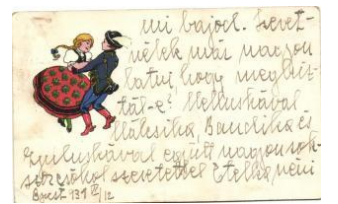 mi bajod. Szeret-
nélek már nagyon
látni, hogy meghíz-
tál-e? Melluskával
Bandika és
Gyuluskával együtt nagyon sok-
szor csókol szeretettel Etelka néni
Bpest 931 12